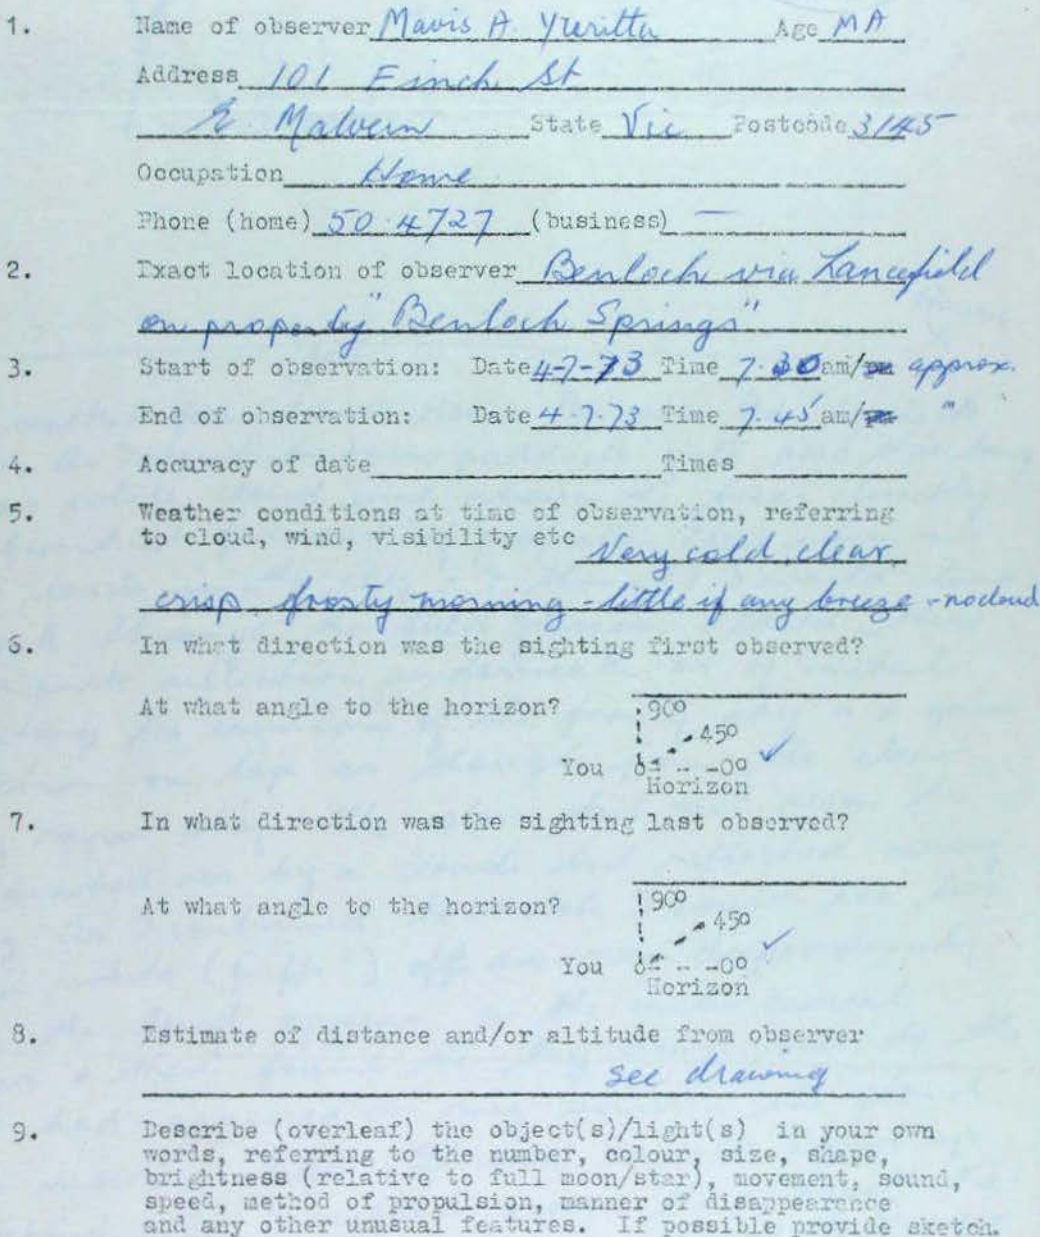 1. Name of observer Mavis A. Age MA
Address 101 Finch St
E. Malvern State Vic Postcode 3145
Occupation Home
Phone (home) 50.4727 (business) —
2. Exact location of observer Benloch via Lancefield
on property "Benloch Springs"
3. Start of observation: Date 4-7-73 Time 7.30 am/pm approx.
End of observation: Date 4.7.73 Time 7.45 am/pm "
4. Accuracy of date Times
5. Weather conditions at time of observation, referring
to cloud, wind, visibility etc Very cold, clear,
crisp frosty morning - little if any breeze - no cloud
6. In what direction was the sighting first observed?
At what angle to the horizon? 90°
45°
You 0° ✓
Horizon
7. In what direction was the sighting last observed?
At what angle to the horizon? 90°
45°
You 0° ✓
Horizon
8. Estimate of distance and/or altitude from observer
see drawing
9. Describe (overleaf) the object(s)/light(s) in your own
words, referring to the number, colour, size, shape,
brightness (relative to full moon/star), movement, sound,
speed, method of propulsion, manner of disappearance
and any other unusual features. If possible provide sketch.